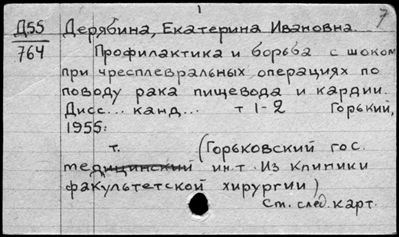 1
7
Д55 Дерябина, Екатерина Ивановна.
764 Профилактика и борьба с шоком
при чресплевральных операциях по
поводу рака пищевода и кардии.
Дисс... канд... т 1-2 Горький,
1955.
т. (Горьковский гос.
медицинский ин.т. Из клиники
факультетской хирургии)
См. след. карт.